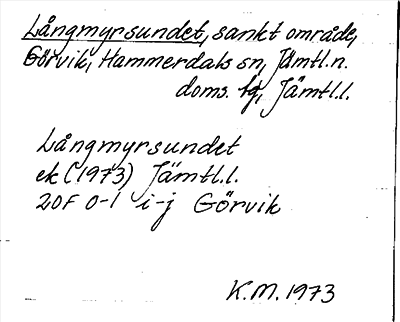 Långmyrsundet, sankt område,
Görvik, Hammerdals sn, Jämtl.n.
doms. lg, Jämtl.l.
Långmyrsundet
ek (1973) Jämtl.l.
20F 0-1 i-j Görvik
K.M. 1973